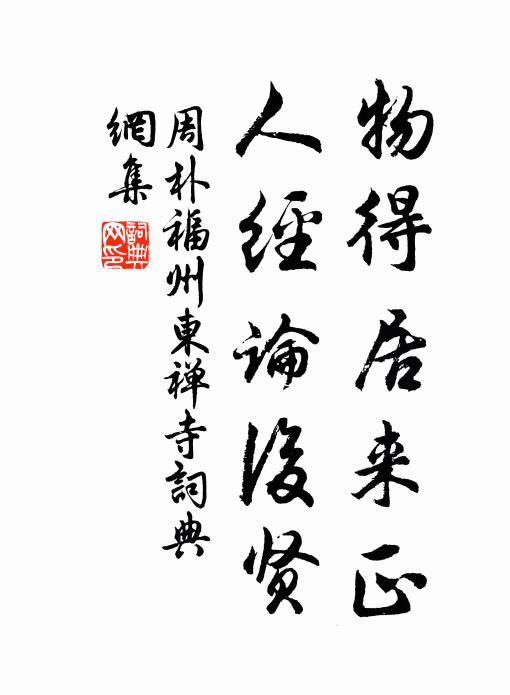 物得居来正
人經論後贤
周朴福州東禅寺詞典
網集
詞典
网印